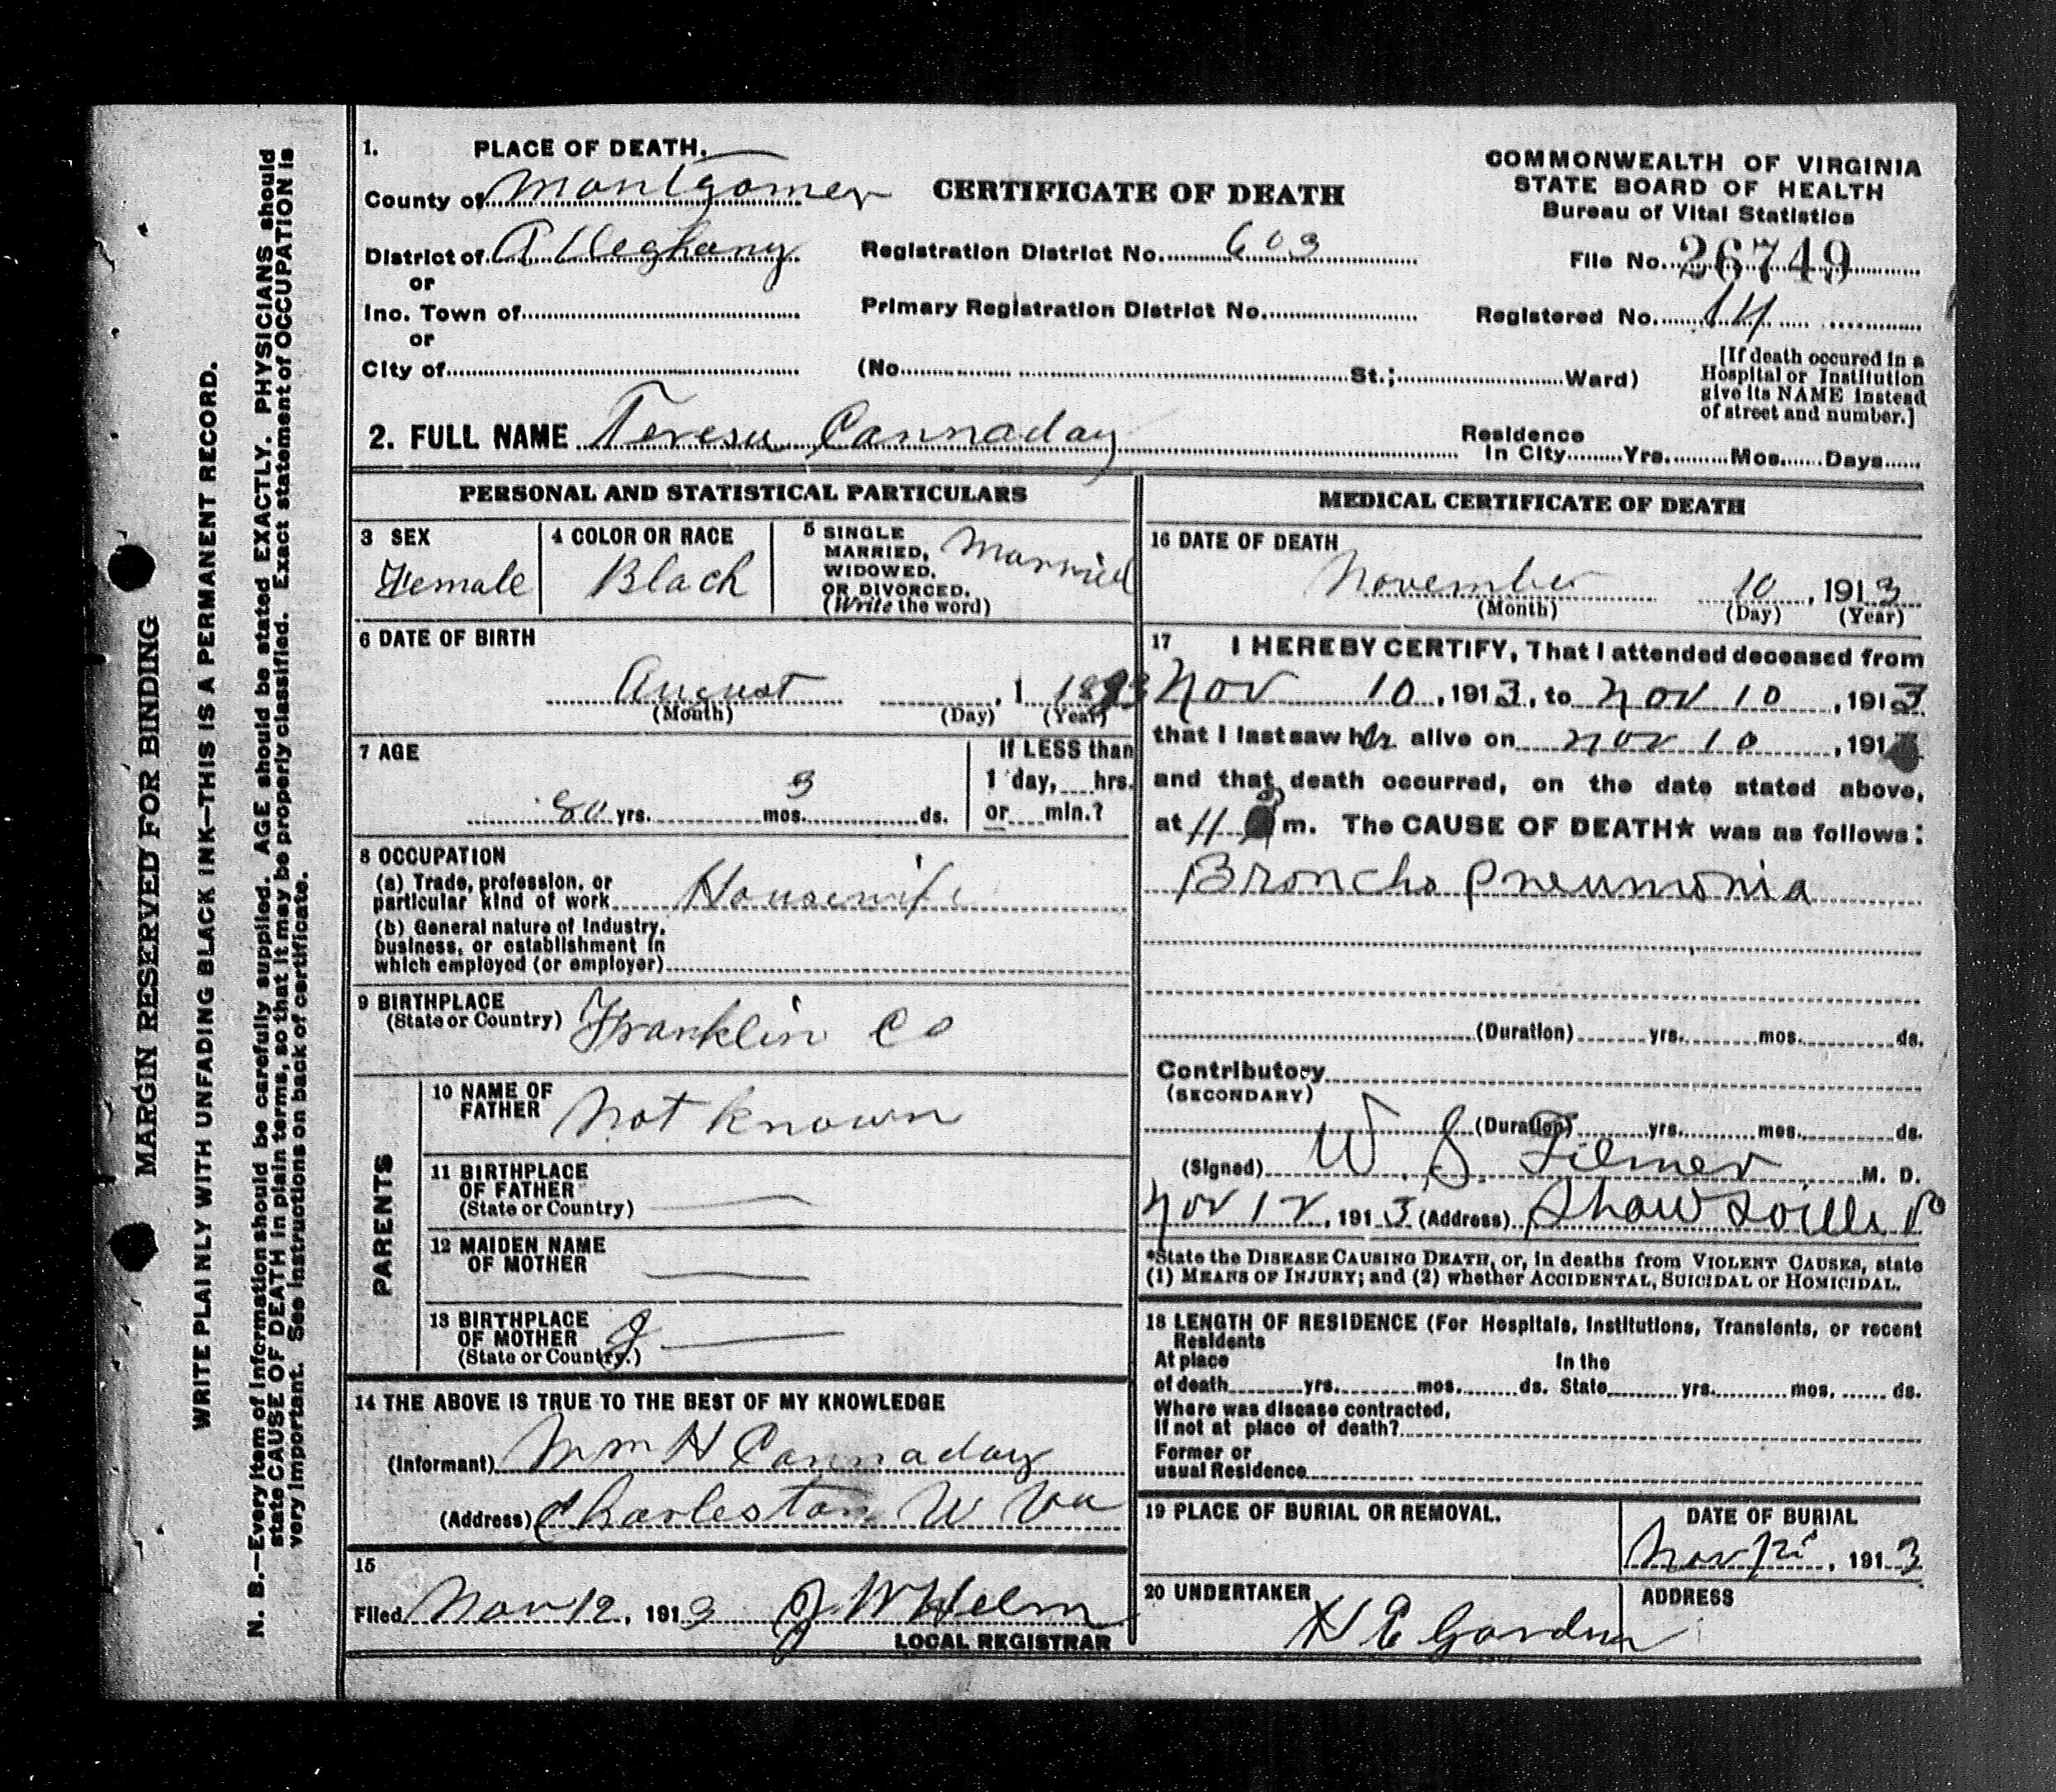 MARGIN RESERVED FOR BINDING
WRITE PLAINLY WITH UNFADING BLACK INK—THIS IS A PERMANENT RECORD.
N. B.—Every item of information should be carefully supplied. AGE should be stated EXACTLY. PHYSICIANS should
state CAUSE OF DEATH in plain terms, so that it may be properly classified. Exact statement of OCCUPATION is
very important. See instructions on back of certificate.
1. PLACE OF DEATH.
County of Montgomery
District of Alleghany
or
Inc. Town of
or
City of
CERTIFICATE OF DEATH
Registration District No. 603
Primary Registration District No.
(No. St.; Ward)
COMMONWEALTH OF VIRGINIA
STATE BOARD OF HEALTH
Bureau of Vital Statistics
File No. 26749
Registered No. 14
[If death occured in a
Hospital or Institution
give its NAME instead
of street and number.]
2. FULL NAME Teresa Cannaday
Residence
In City Yrs. Mos. Days
PERSONAL AND STATISTICAL PARTICULARS
3 SEX
Female
4 COLOR OR RACE
Black
5 SINGLE
MARRIED,
WIDOWED,
OR DIVORCED.
(Write the word)
Married
6 DATE OF BIRTH
August , 1
(Month) (Day) (Year)
7 AGE
80 yrs. 3 mos. ds.
If LESS than
1 day, hrs.
or min.?
8 OCCUPATION
(a) Trade, profession, or
particular kind of work Housewife
(b) General nature of Industry,
business, or establishment in
which employed (or employer)
9 BIRTHPLACE
(State or Country) Franklin Co
PARENTS
10 NAME OF
FATHER not known
11 BIRTHPLACE
OF FATHER
(State or Country)
12 MAIDEN NAME
OF MOTHER
13 BIRTHPLACE
OF MOTHER
(State or Country.)
14 THE ABOVE IS TRUE TO THE BEST OF MY KNOWLEDGE
(Informant) Wm H Cannaday
(Address) Charleston W Va
15
Filed Nov 12, 1913 J W Helm
LOCAL REGISTRAR
MEDICAL CERTIFICATE OF DEATH
16 DATE OF DEATH
November 10, 1913
(Month) (Day) (Year)
17 I HEREBY CERTIFY, That I attended deceased from
Nov 10, 1913, to Nov 10, 1913
that I last saw her alive on Nov 10, 191
and that death occurred, on the date stated above,
at 11 m. The CAUSE OF DEATH★ was as follows:
Broncho pneumonia
(Duration) yrs. mos. ds.
Contributory
(SECONDARY)
(Duration) yrs. mos. ds.
(Signed) W. S. M. D.
Nov 12, 1913 (Address) Shawsville
*State the DISEASE CAUSING DEATH, or, in deaths from VIOLENT CAUSES, state
(1) MEANS OF INJURY; and (2) whether ACCIDENTAL, SUICIDAL or HOMICIDAL.
18 LENGTH OF RESIDENCE (For Hospitals, Institutions, Transients, or recent
Residents
At place In the
of death yrs. mos. ds. State yrs. mos. ds.
Where was disease contracted,
If not at place of death?
Former or
usual Residence
19 PLACE OF BURIAL OR REMOVAL.
DATE OF BURIAL
Nov 12, 1913
20 UNDERTAKER
H E Garden
ADDRESS